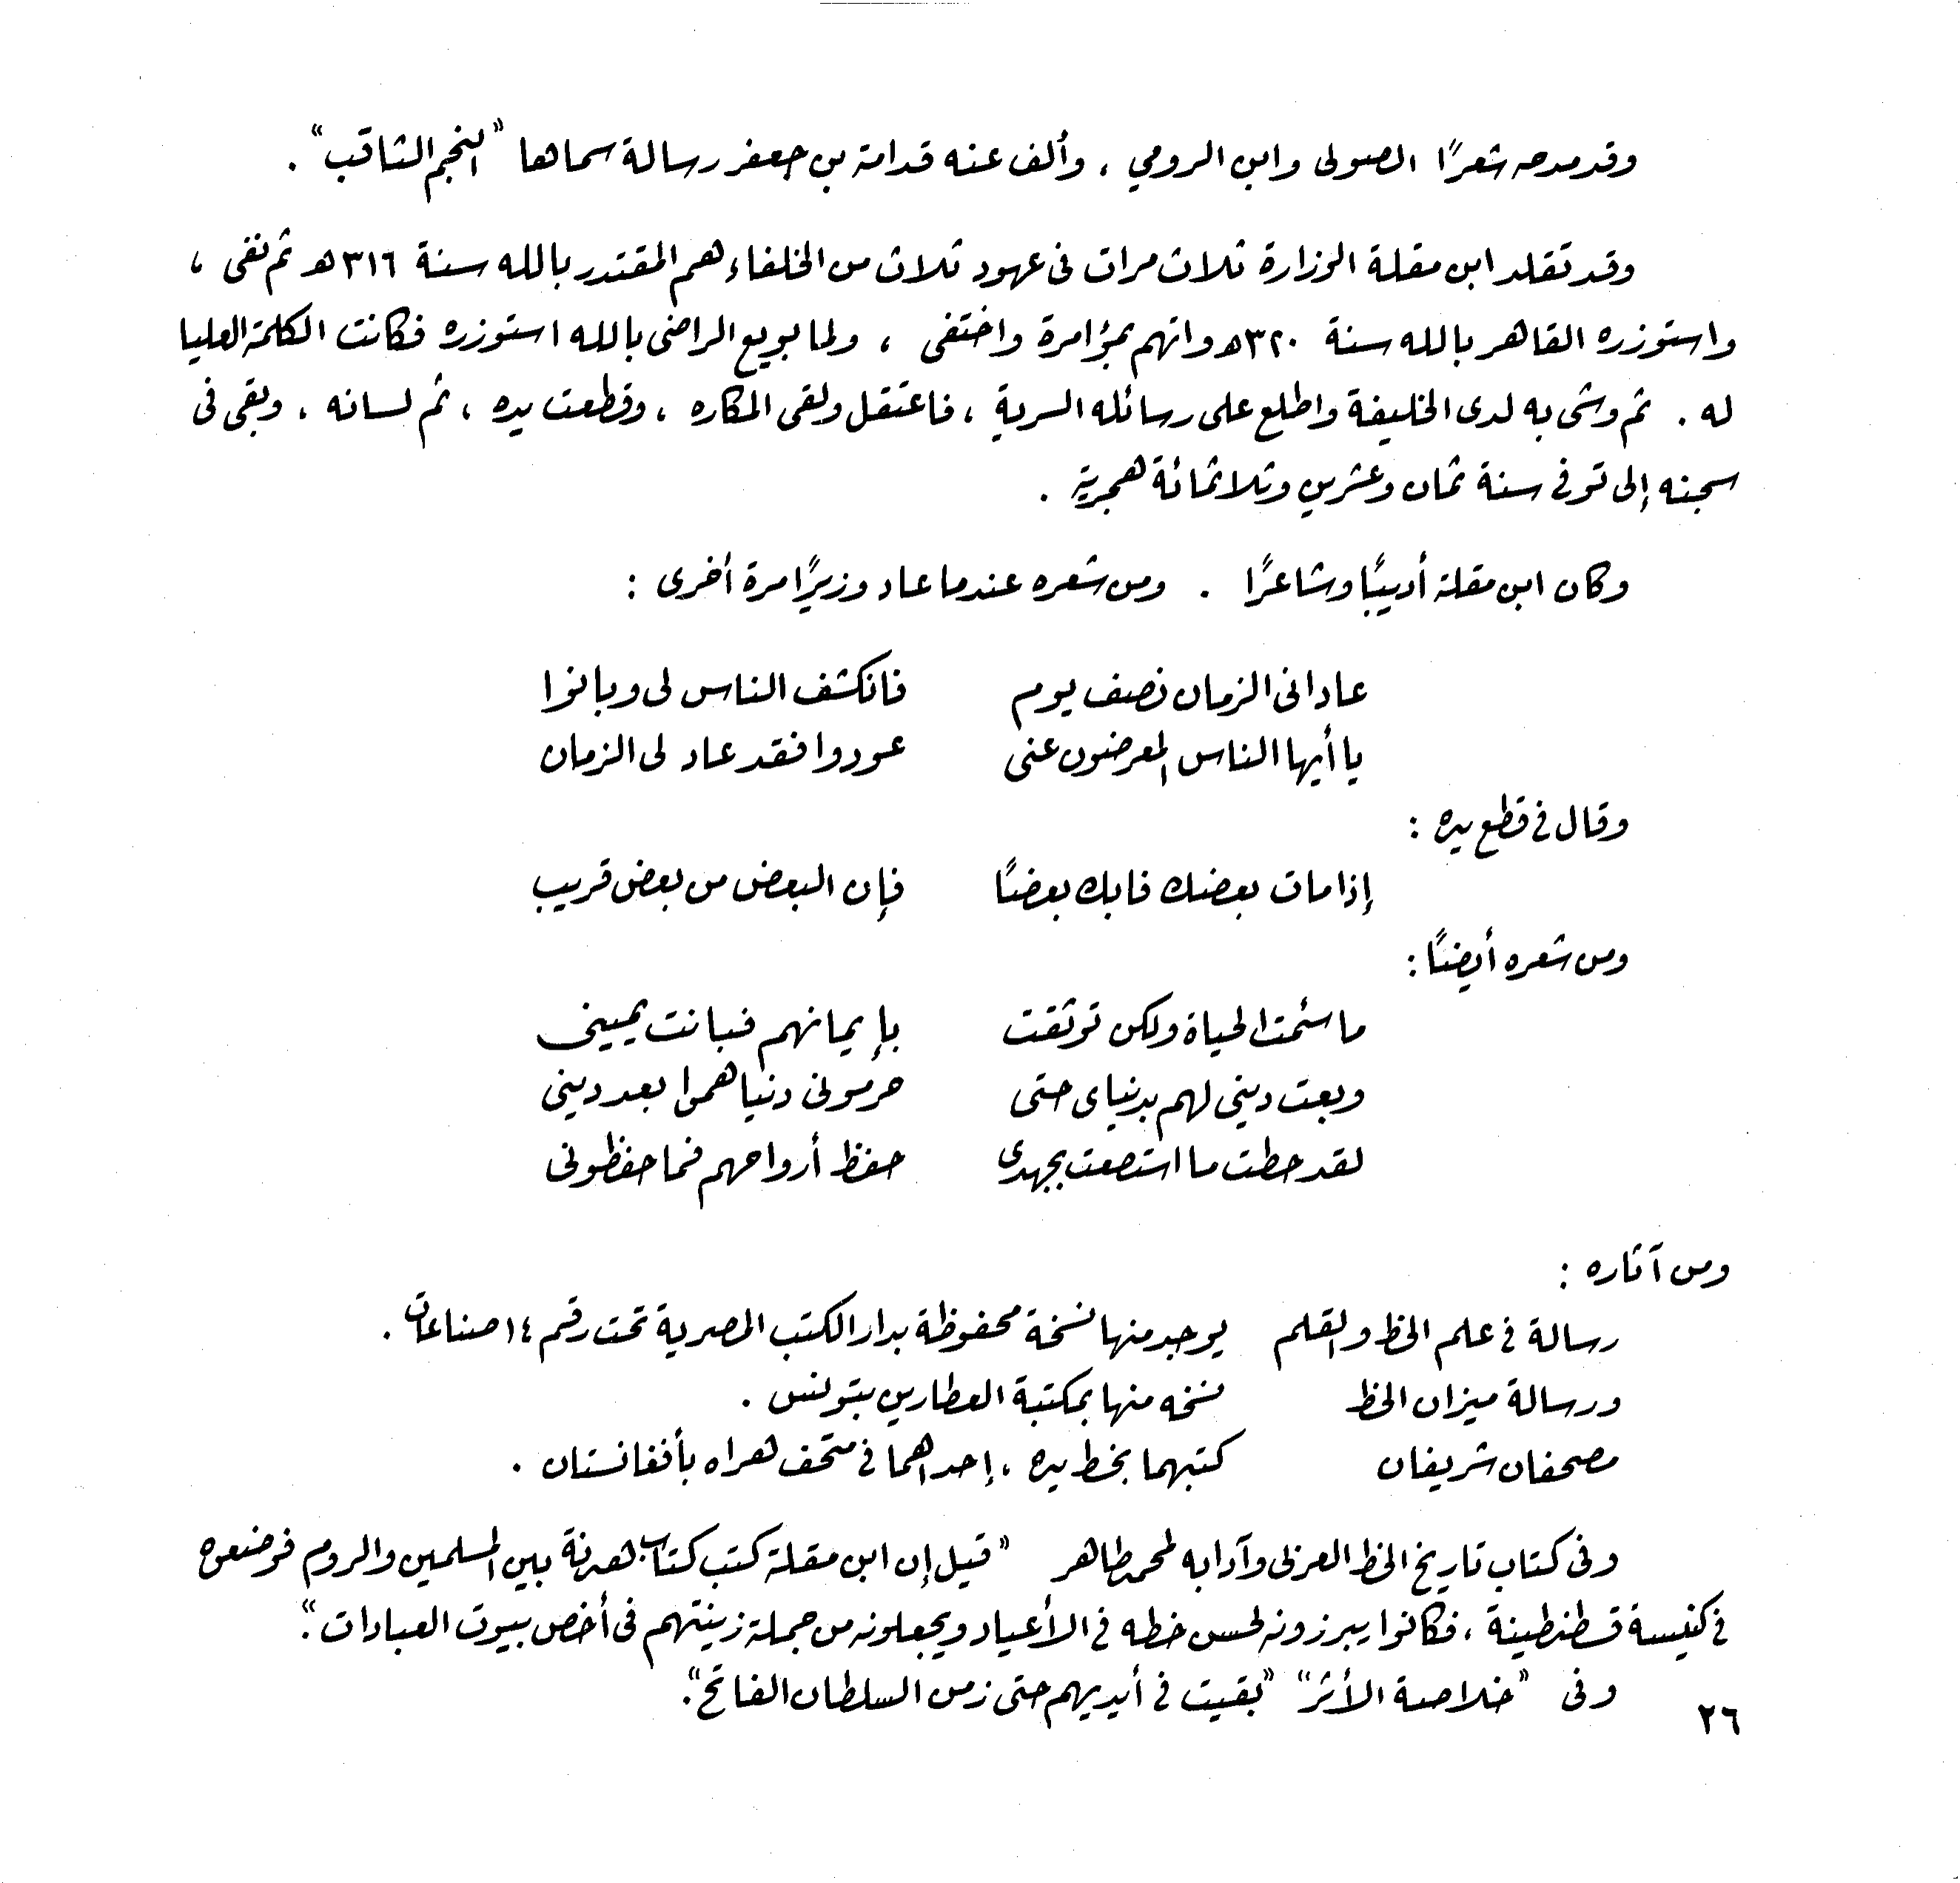 وقد مدحه شعرًا الصولى وابن الرومي ، وألف عنه قدامة بن جعفر رسالة سماها "النجم الثاقب" .
وقد تقلد ابن مقلة الوزارة ثلاث مرات فى عهود ثلاث من الخلفاء هم المقتدر بالله سنة ٣١٦ هـ ثم نفى ،
واستوزره القاهر بالله سنة ٣٢٠ هـ واتهم بمؤامرة واختفى ، ولما بويع الراضى بالله استوزره فكانت الكلمة العليا
له . ثم وشى به لدى الخليفة واطلع على رسائله السرية ، فاعتقل ولقى المكاره ، وقطعت يده ، ثم لسانه ، وبقى فى
سجنه إلى توفى سنة ثمان وعشرين وثلاثمائة هجرية .
وكان ابن مقلة أديبًا وشاعرًا . ومن شعره عندما عاد وزيرًا مرة أخرى :
عادانى الزمان نصف يوم فانكشف الناس لى وبانوا
يا أيها الناس المعرضون عنى عودوا فقد عاد لى الزمان
وقال فى قطع يده :
إذا مات بعضك فابك بعضًا فإن البعض من بعض قريب
ومن شعره أيضًا :
ما سئمت الحياة ولكن توثقت بإيمانهم فبانت يمينى
وبعت دينى لهم بدنياى حتى حرمونى دنياهموا بعد دينى
لقد حطت ما استصعت بجهدى حفظ أرواحهم فما حفظونى
ومن آثاره :
رسالة فى علم الخط والقلم يوجد منها نسخة محفوظة بدار الكتب المصرية تحت رقم ١٤ صناعات .
ورسالة ميزان الخط نسخه منها بمكتبة العطارين بتونس .
مصحفان شريفان كتبهما بخط يده ، إحداهما فى متحف هراه بأفغانستان .
وفى كتاب تاريخ الخط العربى وآدابه لمحمد طاهر "قيل إن ابن مقلة كتب كتاب هدنة بين المسلمين والروم فوضعوه
فى كنيسة قسطنطينة ، فكانوا يبرزونه لحسن خطه فى الأعياد ويجعلونه من جملة زينتهم فى أخص بيوت العبادات" .
وفى "خلاصة الأثر" "بقيت فى أيديهم حتى زمن السلطان الفاتح" .
٢٦